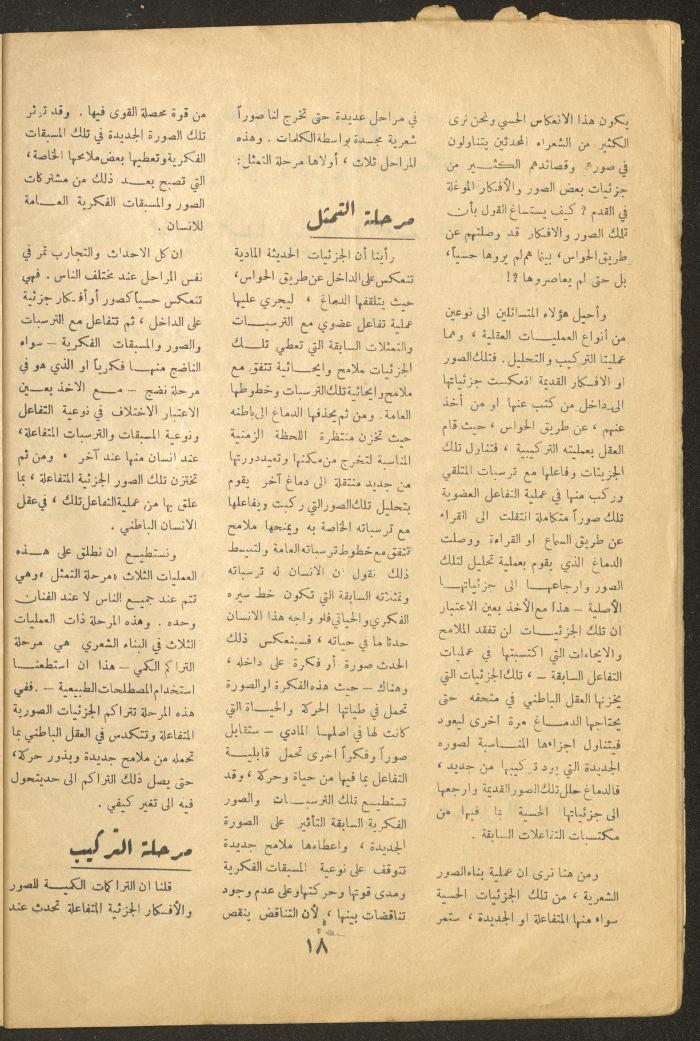 يكون هذا الانعكاس الحسي ونحن نرى
الكثير من الشعراء المحدثين يتناولون
في صورهم وقصائدهم الكثير من
جزئيات بعض الصور والأفكار الموغلة
في القدم ؟ كيف يستساغ القول بأن
تلك الصور والافكار قد وصلتهم عن
طريق الحواس، بينما هم لم يروها حسياً،
بل حتى لم يعاصروها ؟!
وأحيل هؤلاء المتسائلين الى نوعين
من أنواع العمليات العقلية ، وهما
عمليتا التركيب والتحليل. فتلك الصور
او الافكار القديمة انعكست جزئياتها
الى داخل من كتب عنها او من أخذ
عنهم ، عن طريق الحواس ، حيث قام
العقل بعمليته التركيبية ، فتناول تلك
الجزيئات وفاعلها مع ترسبات المتلقي
وركب منها في عملية التفاعل العضوية
تلك صوراً متكاملة انتقلت الى القراء
عن طريق السماع او القراءة ووصلت
الدماغ الذي يقوم بعملية تحليل لتلك
الصور وارجاعها الى جزئياتها
الأصلية – هذا مع الأخذ بعين الاعتبار
ان تلك الجزئيات لن تفقد الملامح
والايحاءات التي اكتسبتها في عمليات
التفاعل السابقة – ، تلك الجزئيات التي
يخزنها العقل الباطني في متحفه حتى
يحتاجها الدماغ مرة اخرى ليعود
فيتناول اجزاءها المناسبة لصوره
الجديدة التي يود تركيبها من جديد ،
فالدماغ حلل تلك الصور القديمة وارجعها
الى جزئياتها الحسية بما فيها من
مكتسبات التفاعلات السابقة .
ومن هنا نرى ان عملية بناء الصور
الشعرية ، من تلك الجزئيات الحسية
سواء منها المتفاعلة او الجديدة ، ستمر
في مراحل عديدة حتى تخرج لنا صوراً
شعرية مجسدة بواسطة الكلمات . وهذه
المراحل ثلاث ، أولاها مرحلة التمثل :
مرحلة التمثل
رأينا أن الجزئيات الحديثة المادية
تنعكس على الداخل عن طريق الحواس،
حيث يتلقفها الدماغ ، ليجري عليها
عملية تفاعل عضوي مع الترسبات
والتمثلات السابقة التي تعطي تلك
الجزئيات ملامح وايحائية تتفق مع
ملامح وايحائية تلك الترسبات وخطوطها
العامة . ومن ثم يحذفها الدماغ الى باطنه
حيث تخزن منتظرة اللحظة الزمنية
المناسبة لتخرج من مكمنها وتعيد دورتها
من جديد منتقلة الى دماغ آخر يقوم
بتحليل تلك الصور التي ركبت ويفاعلها
مع ترسباته الخاصة به ويمنحها ملامح
تتفق مع خطوط ترسباته العامة ولتبسيط
ذلك نقول ان الانسان له ترسباته
وتمثلاته السابقة التي تكون خط سيره
الفكري والحياتي فلو واجه هذا الانسان
حدثا ما في حياته ، فسينعكس ذلك
الحدث صورة أو فكرة على داخله ،
وهناك – حيث هذه الفكرة او الصورة
تحمل في طياتها الحركة والحياة التي
كانت لها في اصلها المادي – ستقابل
صوراً وفكراً اخرى تحمل قابلية
التفاعل بما فيها من حياة وحركة ، وقد
تستطيع تلك الترسبات والصور
الفكرية السابقة التأثير على الصورة
الجديدة ، واعطاءها ملامح جديدة
تتوقف على نوعية المسبقات الفكرية
ومدى قوتها وحركتها وعلى عدم وجود
تناقضات بينها ، لأن التناقض ينقص
من قوة محصلة القوى فيها . وقد تؤثر
تلك الصورة الجديدة في تلك المسبقات
الفكرية وتعطيها بعض ملامحها الخاصة،
التي تصبح بعد ذلك من مشتركات
الصور والمسبقات الفكرية العامة
للانسان .
ان كل الاحداث والتجارب تمر في
نفس المراحل عند مختلف الناس . فهي
تنعكس حسياً كصور أو أفكار جزئية
على الداخل ، ثم تتفاعل مع الترسبات
والصور والمسبقات الفكرية – سواء
الناضج منها فكرياً او الذي هو في
مرحلة نضج – مع الاخذ بعين
الاعتبار الاختلاف في نوعية التفاعل
ونوعية المسبقات والترسبات المتفاعلة،
عند انسان منها عند آخر ، ومن ثم
تختزن تلك الصور الجزئية المتفاعلة ، بما
علق بها من عملية التفاعل تلك ، في عقل
الانسان الباطني .
ونستطيع ان نطلق على هذه
العمليات الثلاث «مرحلة التمثل» وهي
تتم عند جميع الناس لا عند الفنان
وحده . وهذه المرحلة ذات العمليات
الثلاث في البناء الشعري هي مرحلة
التراكم الكمي – هذا ان استطعنا
استخدام المصطلحات الطبيعية – . ففي
هذه المرحلة تتراكم الجزئيات الصورية
المتفاعلة وتتكدس في العقل الباطني بما
تحمله من ملامح جديدة وبذور حركة،
حتى يصل ذلك التراكم الى حد يتحول
فيه الى تغير كيفي .
مرحلة التركيب
قلنا ان التراكمات الكمية للصور
والأفكار الجزئية المتفاعلة تحدث عند
١٨